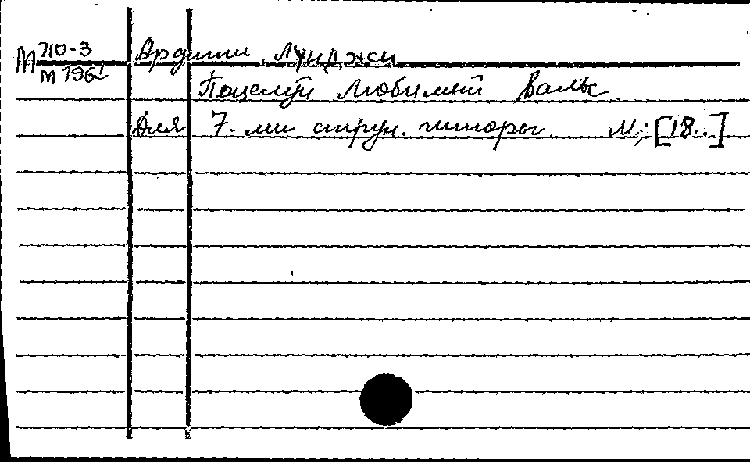 М 710-3
М 1961
Ардити, Луиджи
Поцелуй Любимый Вальс
Для 7-ми струн. гитары М; [18..]